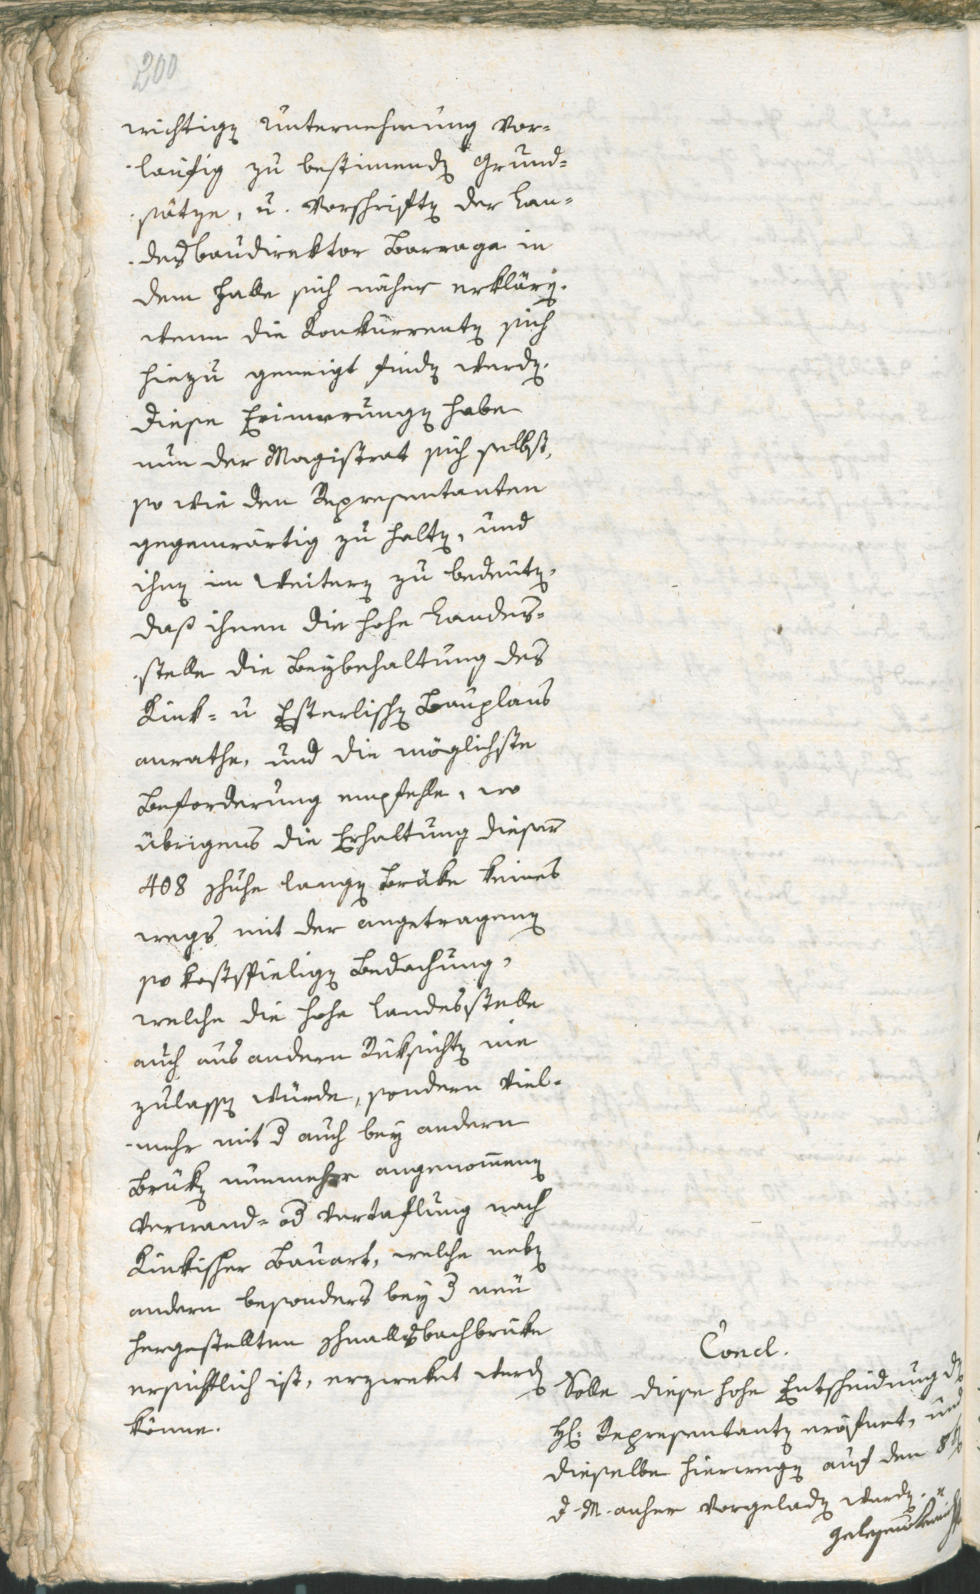 200
wichtigen Unternehmung vor=
läufig zu bestimmenden Grund=
sätze, u. Vorschriften der Lan=
desbaudirektor Barraga in
dem Falle sich näher erklären.
wenn die Konkurrenten sich
hiezu geneigt finden werden.
Diese Erinnerungen habe
nun der Magistrat sich selbst,
so wie den Representanten
gegenwärtig zu halten, und
ihnen im Weitern zu bedeuten,
daß ihnen die hohe Landes=
stelle die Beybehaltung des
Kink= u Esterlischen Bauplans
anrathe, und die möglichste
Beforderung empfehle, wo
übrigens die Erhaltung dieser
408 Schuhe langen Brüke keines
wegs mit der angetragenen
so kostspieligen Bedachung,
welche die hohe Landesstelle
auch aus andern Rüksichten nie
zulassen würde, sondern viel=
mehr mit d auch bey andern
Brüken nunmehr angenommenen
Verwand= od Vertaflung nach
Kinkischer Bauart, welche neben
andern besonders bey d neu
hergestellten Schnalsbachbrüke
ersichtlich ist, erzweket werden
könne.
Concl.
Solle diese hohe Entscheidung den
H: Representanten eröfnet, und
dieselbe hierwegen auf den 8ten
d. M. anher vorgeladen werden.